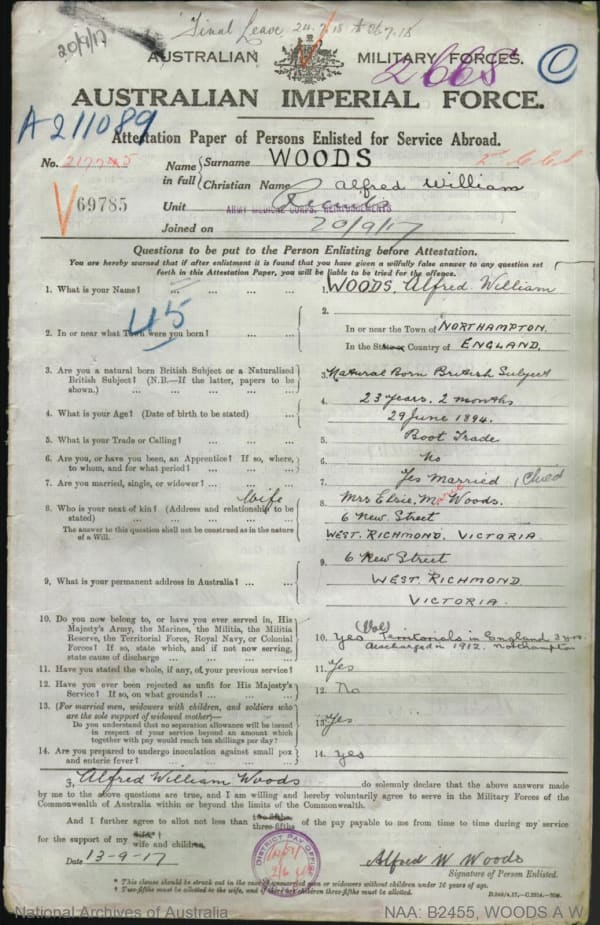 20/9/17
Final Leave 24.7.18 to 06.7.18
AUSTRALIAN MILITARY FORCES.
2668
AUSTRALIAN IMPERIAL FORCE.
A211089
Attestation Paper of Persons Enlisted for Service Abroad.
No.
69785
Name in full
Surname WOODS
Christian Name Alfred William
Unit Recruits
ARMY MEDICAL CORPS, REINFORCEMENTS
Joined on 20/9/17
Questions to be put to the Person Enlisting before Attestation.
You are hereby warned that if after enlistment it is found that you have given a wilfully false answer to any question set
forth in this Attestation Paper, you will be liable to be tried for the offence.
1. What is your Name? ... ... ...
1. WOODS, Alfred William
45
2. In or near what Town were you born? ... ...
2.
In or near the Town of NORTHAMPTON.
In the State or Country of ENGLAND.
3. Are you a natural born British Subject or a Naturalised
British Subject? (N.B.—If the latter, papers to be
shown.) ... ... ... ...
3. Natural Born British Subject
4. What is your Age? (Date of birth to be stated) ...
4. 23 years. 2 months
29 June 1894.
5. What is your Trade or Calling? ... ... ...
5. Boot Trade
6. Are you, or have you been, an Apprentice? If so, where,
to whom, and for what period? ... ...
6. No
7. Are you married, single, or widower? ... ...
7. Yes Married 1 Child
8. Who is your next of kin? (Address and relationship to be
stated) ... ... ... ...
The answer to this question shall not be construed as in the nature
of a Will.
Wife
8. Mrs Elsie, M. Woods.
6 New Street
WEST. RICHMOND, VICTORIA
9. What is your permanent address in Australia? ... ...
9. 6 New Street
WEST. RICHMOND
VICTORIA.
10. Do you now belong to, or have you ever served in, His
Majesty's Army, the Marines, the Militia, the Militia
Reserve, the Territorial Force, Royal Navy, or Colonial
Forces? If so, state which, and if not now serving,
state cause of discharge ... ... ...
10. Yes (Vol) Territorials in England 3 yrs.
discharged in 1912. Northampton
11. Have you stated the whole, if any, of your previous service?
11. Yes
12. Have you ever been rejected as unfit for His Majesty's
Service? If so, on what grounds? ... ... ...
12. No
13. (For married men, widowers with children, and soldiers who
are the sole support of widowed mother)—
Do you understand that no separation allowance will be issued
in respect of your service beyond an amount which
together with pay would reach ten shillings per day? ...
13. Yes
14. Are you prepared to undergo inoculation against small pox
and enteric fever? ... ... ... ...
14. yes
I, Alfred William Woods do solemnly declare that the above answers made
by me to the above questions are true, and I am willing and hereby voluntarily agree to serve in the Military Forces of the
Commonwealth of Australia within or beyond the limits of the Commonwealth.
And I further agree to allot not less than three-fifths of the pay payable to me from time to time during my service
for the support of my wife and children.
Date 13-9-17
DISTRICT PAY OFFICE
Alfred W Woods
Signature of Person Enlisted.
* This clause should be struck out in the case of unmarried men or widowers without children under 16 years of age.
† Two-fifths must be allotted to the wife, and if there are children three-fifths must be allotted.
National Archives of Australia
NAA: B2455, WOODS A W